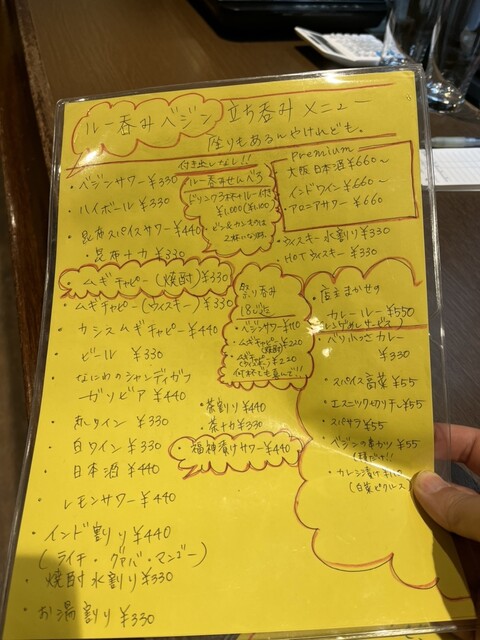 ルー呑みベジン 立ち呑みメニュー
座りもあるんやけれども。
付き出しなし!!
・ベジンサワー ¥330
・ハイボール ¥330
・昆布スパイスサワー ¥440
・昆布ナカ ¥330
ムギチャピー(焼酎)¥330
ムギチャピー(ウィスキー)¥330
・カシスムギチャピー ¥440
・ビール ¥330
・なにわのシャンディガフ
ガリビア ¥440
・赤ワイン ¥330
・白ワイン ¥330
・日本酒 ¥440
・レモンサワー ¥440
・インド割り ¥440
(ライチ・グァバ・マンゴー)
・焼酎水割り ¥330
・お湯割り ¥330
ルー呑みせんべろ
ドリンク3杯+ルー付き
¥1,000
ビン&カンものは
2杯になります
Premium
・大阪日本酒 ¥660~
・インドワイン ¥660~
・アロニアサワー ¥660
・ウィスキー水割り ¥330
・HOTウィスキー ¥330
祭り呑み
18:00迄
・ベジンサワー ¥110
・ムギチャピー(焼酎)¥220
・ムギチャピー(ウィスキー)¥220
何杯でも喜んで!!
・茶割り ¥440
・茶ナカ ¥330
福神漬けサワー ¥440
・店主まかせの
カレールー ¥550
・ペリカっさカレー
¥330
・スパイス高菜 ¥55
・エスニック切り干し ¥55
・スパサラ ¥55
・ベジンの串かつ ¥55
・カレシ漬け
(白菜ピクルス)